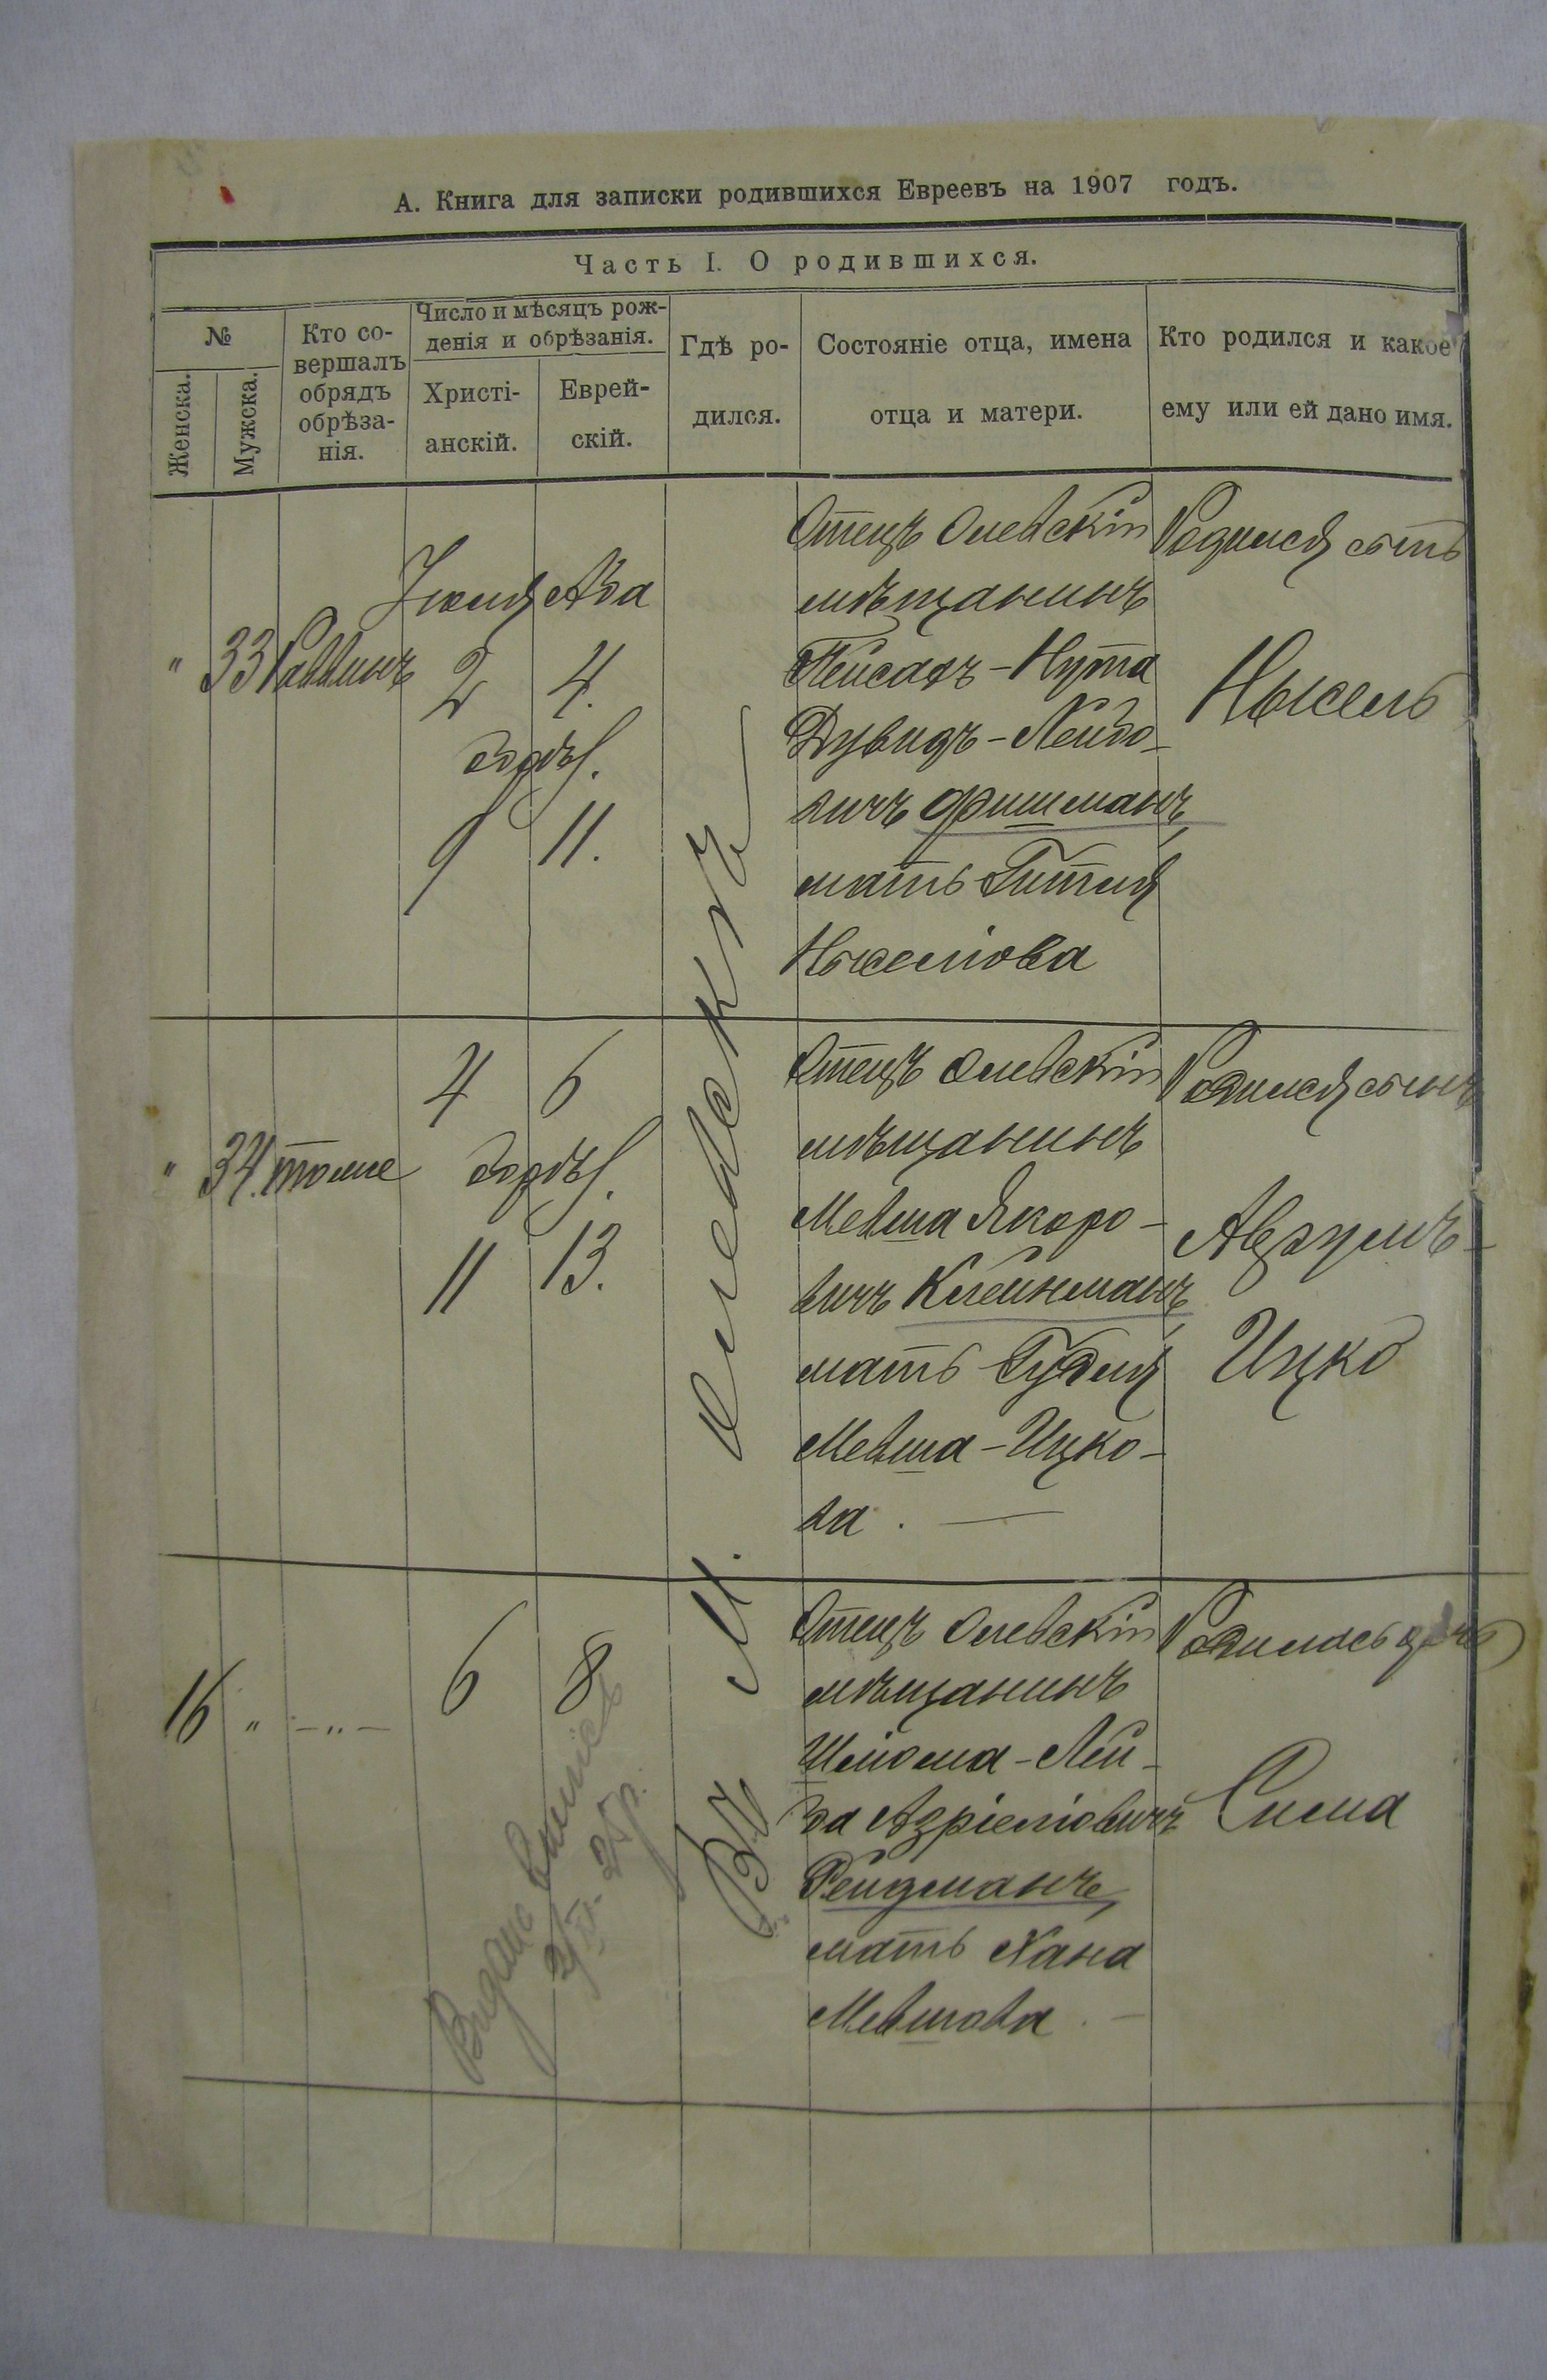 А. Книга для записки родившихся Евреевъ на 1907 годъ.
Часть I. О родившихся.
№
Женска.
Мужска.
Кто со-
вершалъ
обрядъ
обрѣза-
нія.
Число и мѣсяцъ рож-
денія и обрѣзанія.
Христі-
анскій.
Еврей-
скій.
Гдѣ ро-
дился.
Состояніе отца, имена
отца и матери.
Кто родился и какое
ему или ей дано имя.
" 33 Раввинъ
Іюля Ава
2 4.
9 11.
Въ М. Олевскѣ
Отецъ Олевскій
мѣщанинъ
Пейсахъ-Нута
Дувидъ-Лейбо-
вичъ Фишманъ,
мать Гитля
Нысельова
Родился сынъ
Нысель
" 34. тоже
4 6
11 13.
Отецъ Олевскій
мѣщанинъ
Мевша
вичъ Клейнманъ,
мать
Мевша-Ицко-
ва. —
Родился сынъ
Аврумъ-
Ицко
16 " -"-
6 8
Отецъ Олевскій
мѣщанинъ
Шліома-Лей-
ба Азріеліовичъ
Рейдманъ,
мать Хана
Мевшова. —
Родилась дочь
Сима